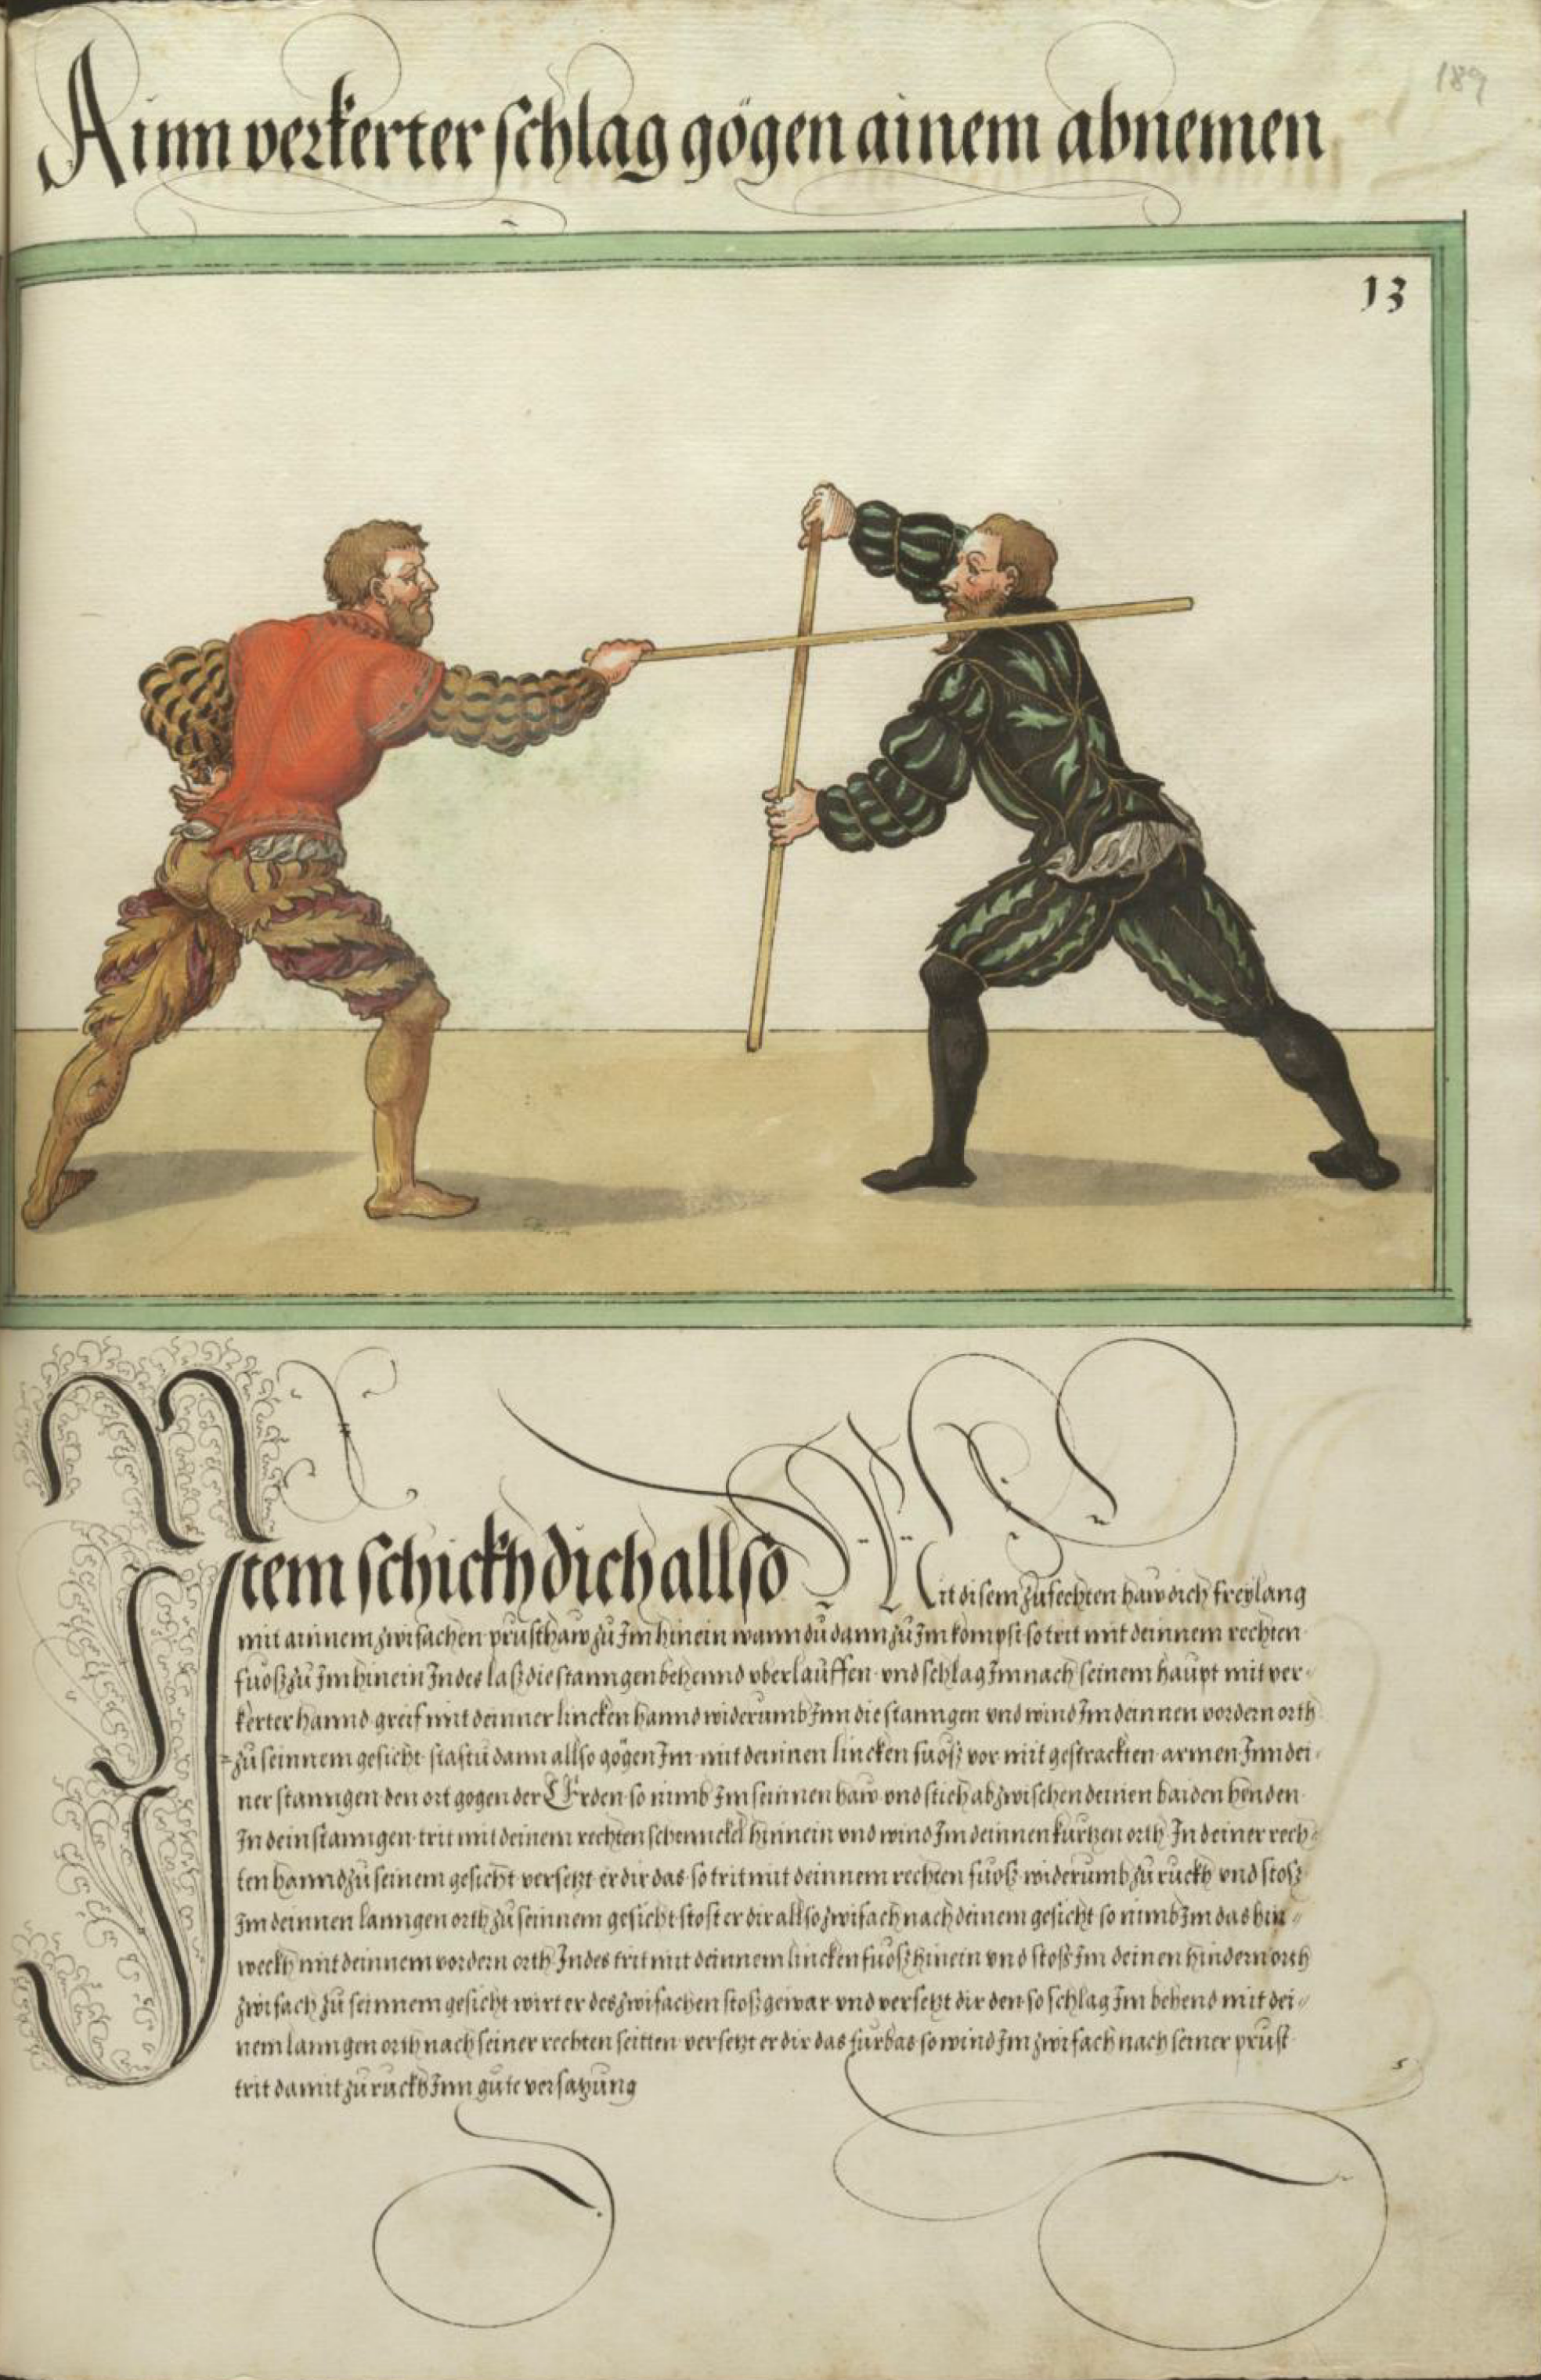 189
Ainn verkerter schlag gögen ainem abnemen
13
Item schickh dich allso Mit disem zufechten haw dich frey lang
mit ainnem zwifachen prusthaw zu Im hinein wann du dann zu Im kompst so trit mit deinnem rechten
fuosz zu Im hinein Indes lasz die stanngen behennd vberlauffen vnd schlag Im nach seinem haupt mit ver-
kerter hannd greif mit deinner lincken hannd widerumb Inn die stanngen vnd wind Im deinnen vordern orth
zu seinnem gesicht stastu dann allso gögen Im mit deininen lincken fuosz vor mit gestrackten armen Inn dei-
ner stanngen den ort gogen der Erden so nimb Im seinnen haw vnd stich ab zwischen deinen baiden henden
In dein stanngen trit mit deinem rechten schennckel hinnein vnd wind Im deinnen kurtzen orth In deiner rech-
ten hannd zu seinem gesicht versetzt er dir das so trit mit deinnem rechten fuosz widerumb zu ruckh vnd stosz
Im deinnen lanngen orth zu seinnem gesicht stost er dir allso zwifach nach deinem gesicht so nimb Im das hin-
weckh mit deinnem vordern orth Indes trit mit deinnem lincken fuosz hinein vnd stosz Im deinen hindern orth
zwifach zu seinnem gesicht wirt er des zwifachen stosz gewar vnd versetzt dir den so schlag Im behend mit dei-
nem lanngen orth nach seiner rechten seitten versetzt er dir das furbas so wind Im zwifach nach seiner prust
trit damit zu ruckh Inn gute versatzung